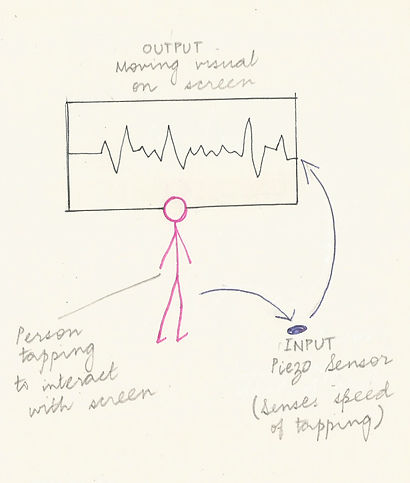 OUTPUT
Moving visual
on screen
Person
tapping
to interact
with screen
INPUT
Piezo Sensor
(Senses speed
of tapping)